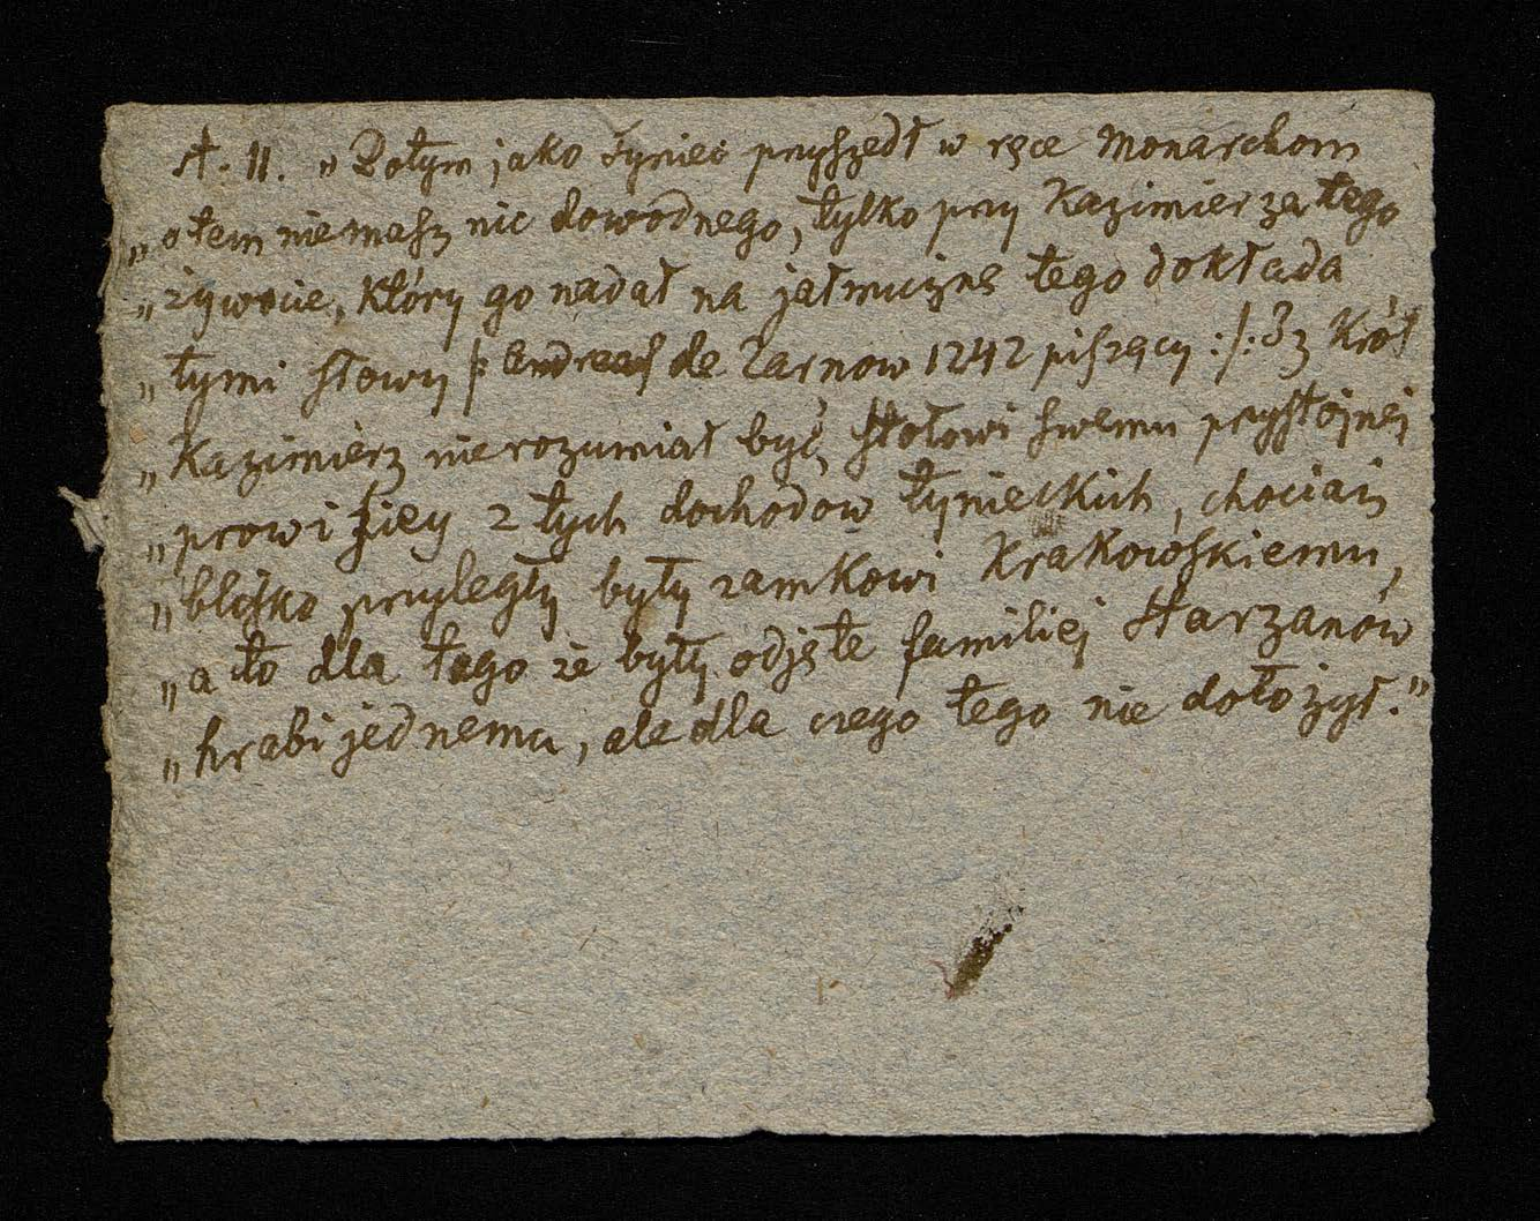 st. 11. „Potym jako Tyniec przyszedł w ręce Monarchom
„o tem niemasz nic dowodnego, tylko przy Kazimierza tego
„żywocie, który go nadał na jałmużnę tego dokłada
„tymi słowy /: Andreas de Żarnow 1242 piszący :/: Iż Król
„Kazimierz nierozumiał być stołowi swemu przystojnej
„prowizjey z tych dochodow tynieckich, chociaż
„blisko przyległy były zamkowi Krakowskiemu,
„a to dla tego że były odjęte familiej Starzanów
„hrabi jednemu, ale dla czego tego nie dołożył."